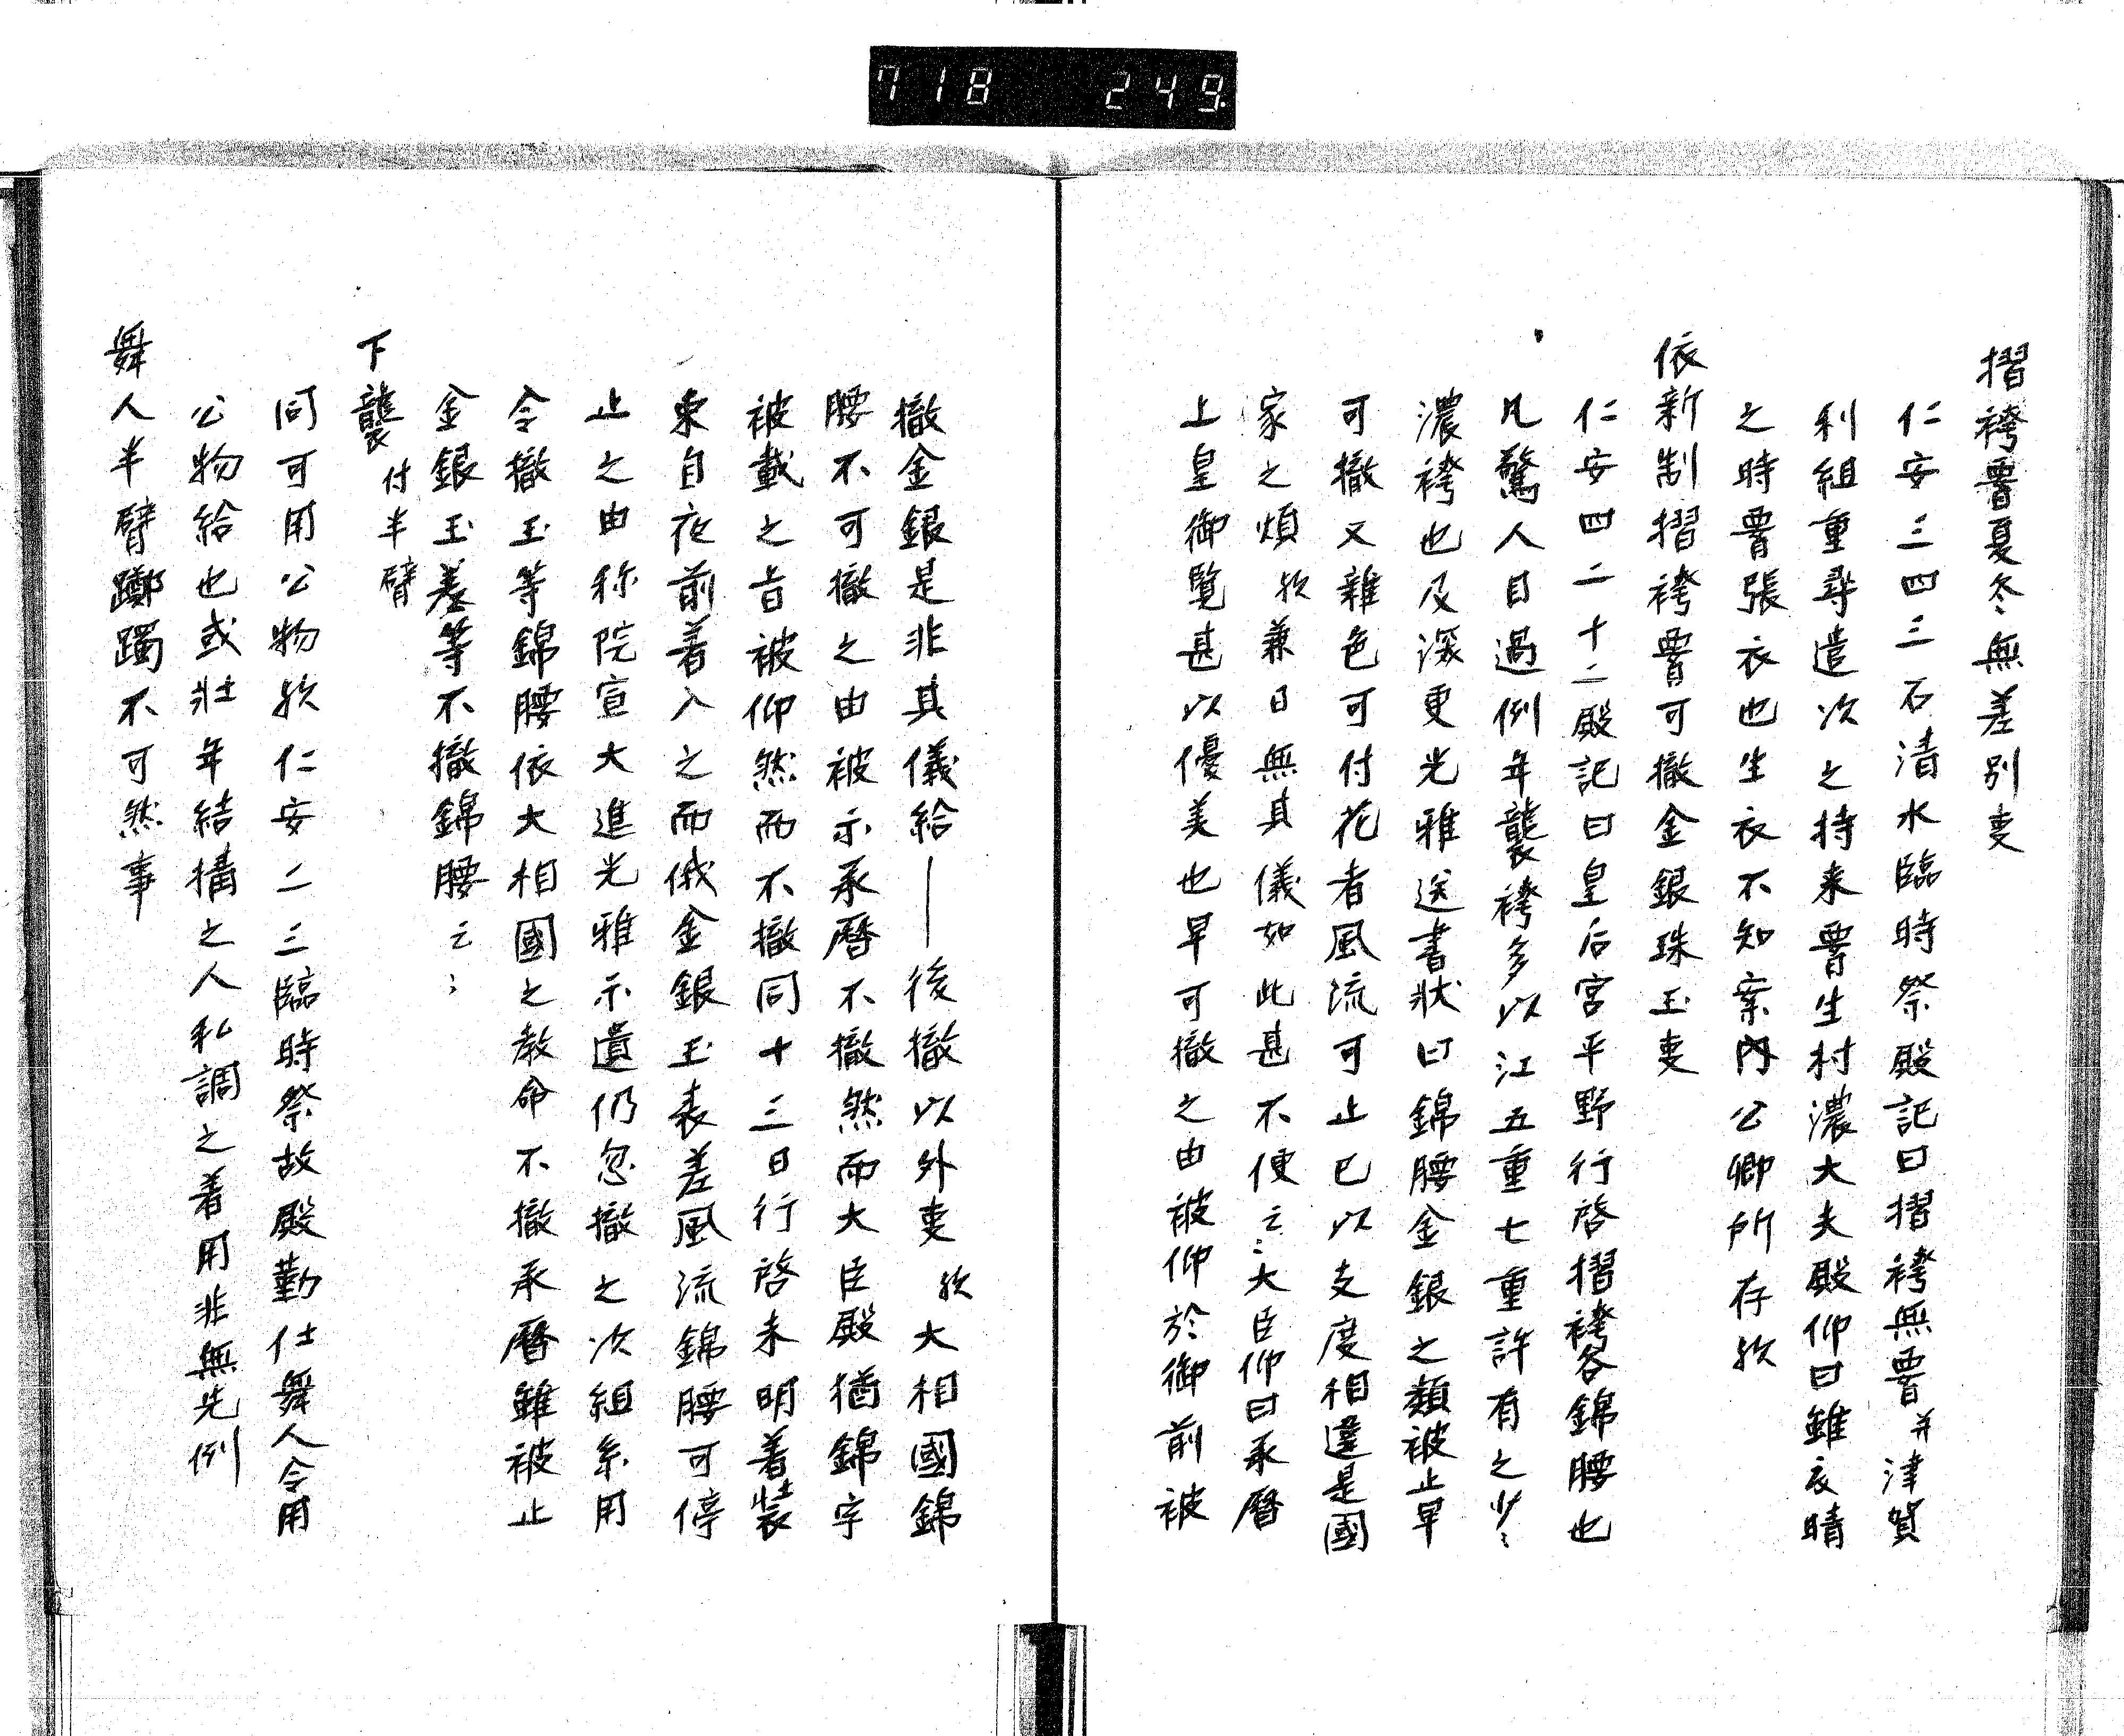 718 249.
摺袴署夏冬無差別叓
仁安三四三石清水臨時祭殿記曰摺袴無署并津賀
利組重尋遣次之持来署生村濃大夫殿仰曰雖衣晴
之時署張衣也生衣不知案内公卿所存欤
依新制摺袴署可撤金銀珠玉叓
仁安四二十二殿記曰皇后宮平野行啓摺袴各錦腰也
凡驚人目過例年襲袴多以江五重七重許有之少〻
濃袴也及深更光雅送書狀曰錦腰金銀之類被止早
可撤又雜色可付花者風流可止已以支度相違是國
家之煩欤兼日無其儀如此甚不便云〻大臣仰曰承曆
上皇御覧甚以優美也早可撤之由被仰於御前被
撤金銀是非其儀給―後撤以外叓欤大相國錦
腰不可撤之由被示承曆不撤然而大臣殿猶錦字
被載之旨被仰然而不撤同十三日行啓未明着装
束自夜前着入之而俄金銀玉表差風流錦腰可停
止之由称院宣大進光雅示遺仍忽撤之次組糸用
令撤玉等錦腰依大相國之教命不撤承曆雖被止
金銀玉差等不撤錦腰云〻
下襲付半臂
同可用公物欤仁安二三臨時祭故殿勤仕舞人令用
公物給也或壮年結構之人私調之着用非無先例
舞人半臂躑躅不可然事